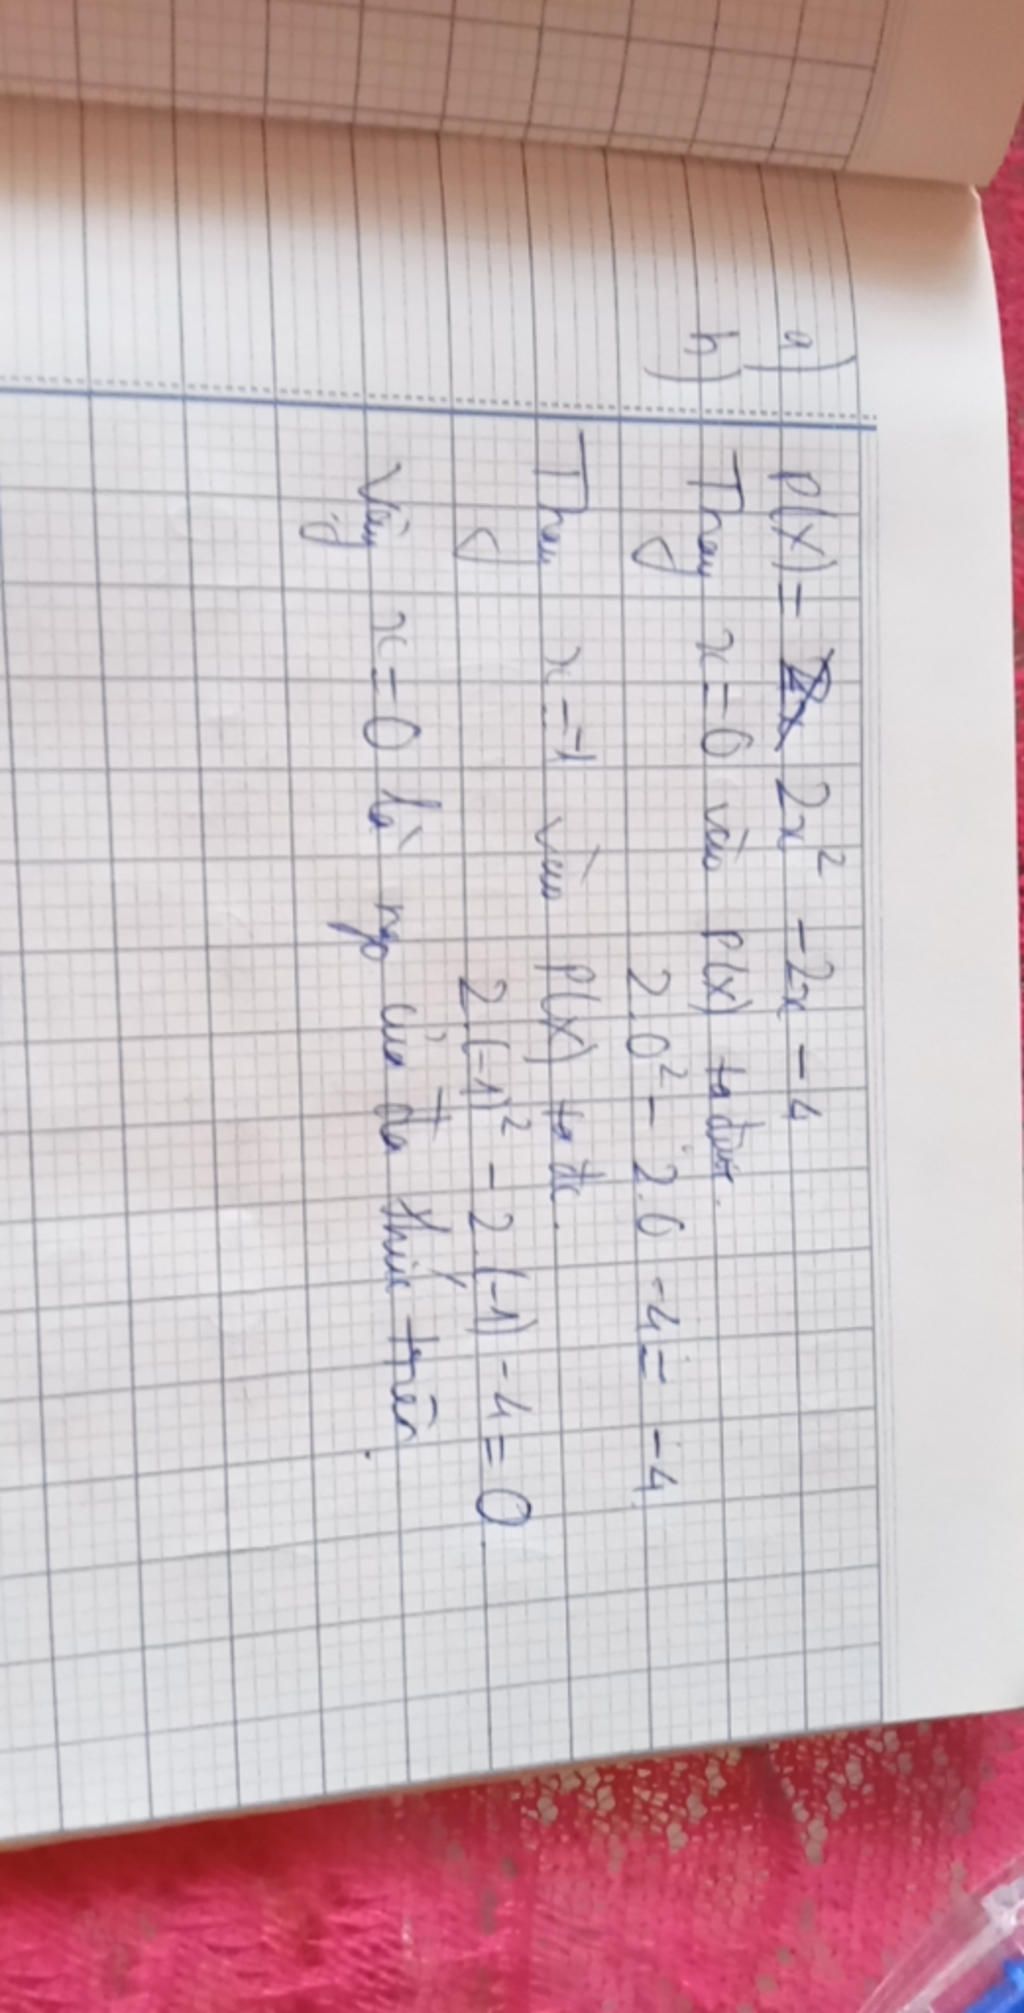 a) P(x) = 2x² - 2x - 4
b) Thay x = 0 vào P(x) ta được.
2.0² - 2.0 - 4 = -4
Thay x = -1 vào P(x) ta đc.
2.(-1)² - 2.(-1) - 4 = 0
Vậy x = 0 là ngo của đa thức trên.